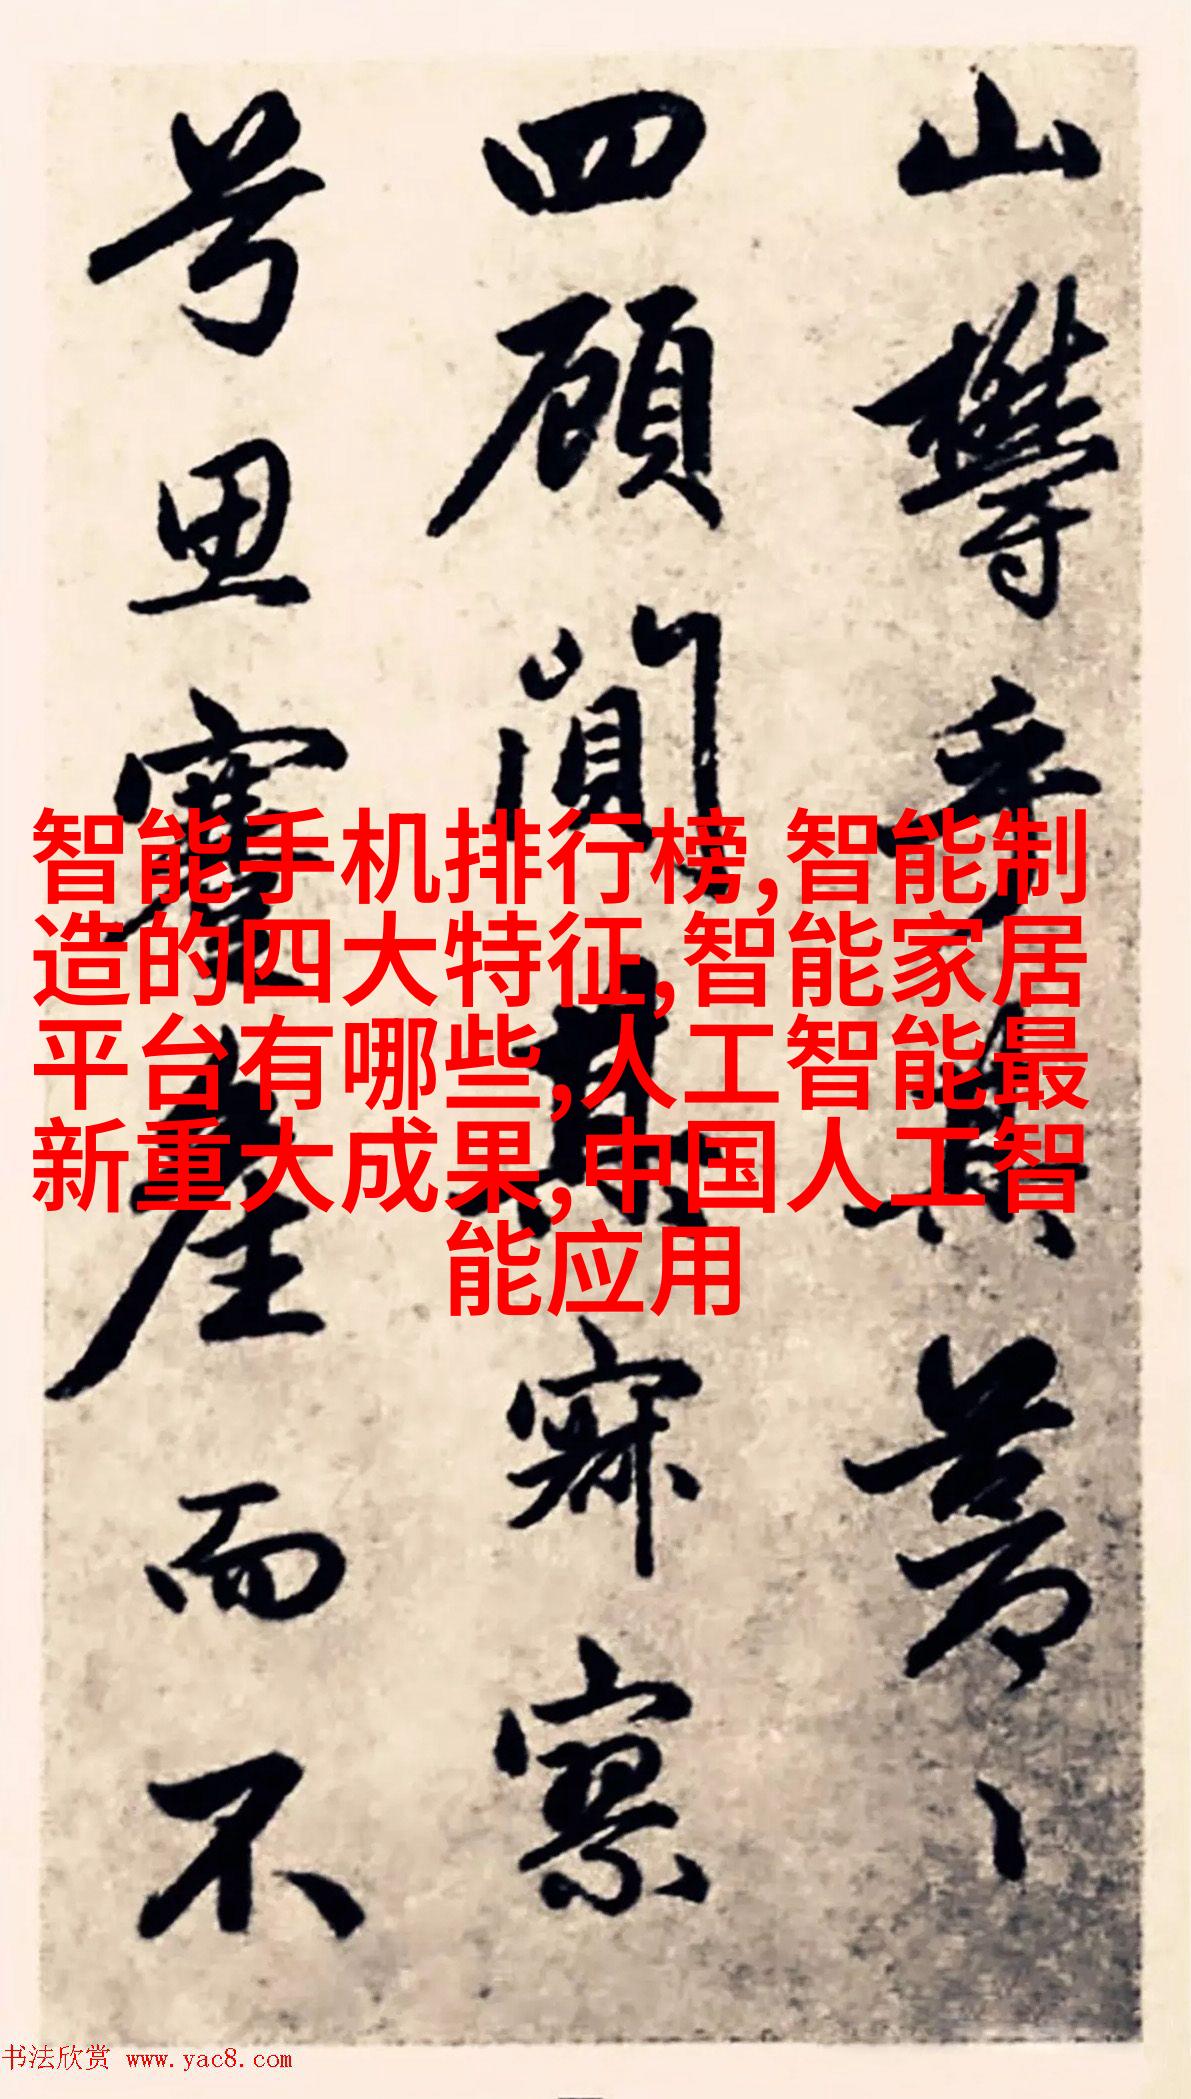 山欝乎其蒼々
四顧闃其寂寥
兮思蹇產而不
智能手机排行榜,智能制
造的四大特征,智能家居
平台有哪些,人工智能最
新重大成果,中国人工智
能应用
书法欣赏 www.yac8.com